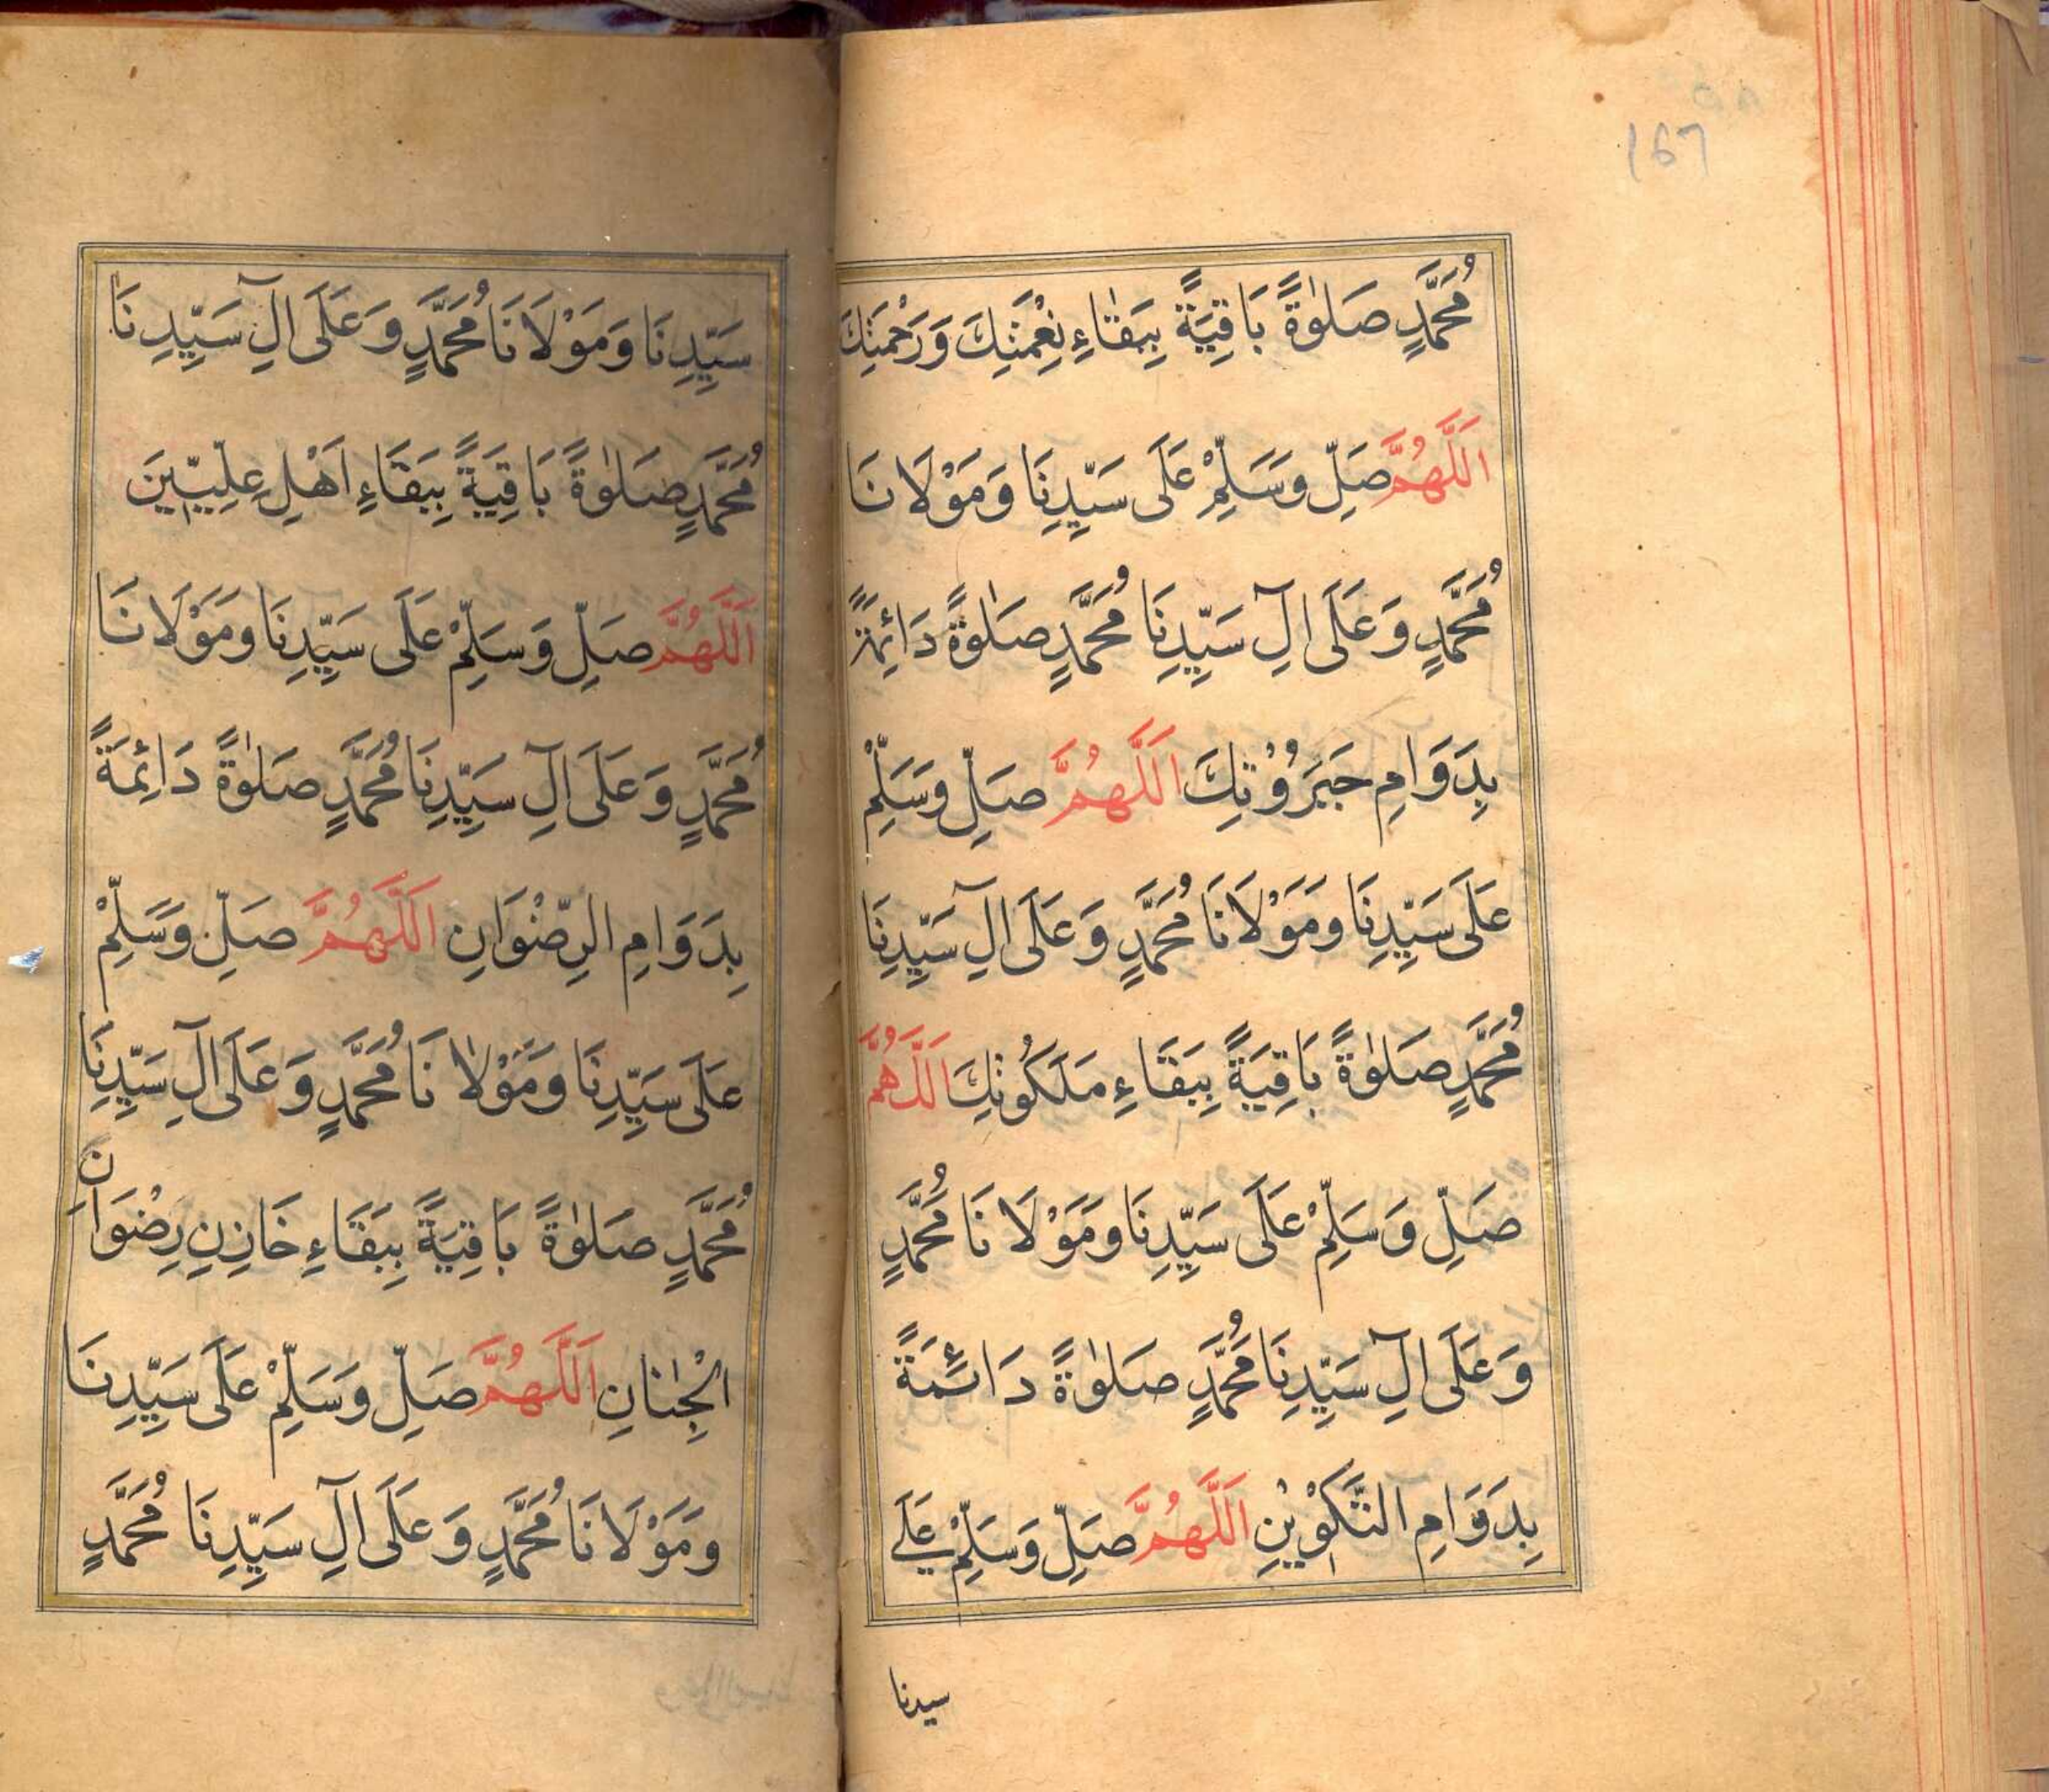 167
مُحَمَّدٍ صَلٰوةً بَاقِيَةً بِبَقَاءِ نِعْمَتِكَ وَرَحْمَتِكَ
اَللّٰهُمَّ صَلِّ وَسَلِّمْ عَلَى سَيِّدِنَا وَمَوْلَانَا
مُحَمَّدٍ وَعَلَى اٰلِ سَيِّدِنَا مُحَمَّدٍ صَلٰوةً دَائِمَةً
بِدَوَامِ جَبَرُوْتِكَ اَللّٰهُمَّ صَلِّ وَسَلِّمْ
عَلَى سَيِّدِنَا وَمَوْلَانَا مُحَمَّدٍ وَعَلَى اٰلِ سَيِّدِنَا
مُحَمَّدٍ صَلٰوةً بَاقِيَةً بِبَقَاءِ مَلَكُوتِكَ اَللّٰهُمَّ
صَلِّ وَسَلِّمْ عَلَى سَيِّدِنَا وَمَوْلَانَا مُحَمَّدٍ
وَعَلَى اٰلِ سَيِّدِنَا مُحَمَّدٍ صَلٰوةً دَائِمَةً
بِدَوَامِ التَّكْوِيْنِ اَللّٰهُمَّ صَلِّ وَسَلِّمْ عَلَى
سيدنا
سَيِّدِنَا وَمَوْلَانَا مُحَمَّدٍ وَعَلَى اٰلِ سَيِّدِنَا
مُحَمَّدٍ صَلٰوةً بَاقِيَةً بِبَقَاءِ اَهْلِ عِلِّيِّيْنَ
اَللّٰهُمَّ صَلِّ وَسَلِّمْ عَلَى سَيِّدِنَا وَمَوْلَانَا
مُحَمَّدٍ وَعَلَى اٰلِ سَيِّدِنَا مُحَمَّدٍ صَلٰوةً دَائِمَةً
بِدَوَامِ الرِّضْوَانِ اَللّٰهُمَّ صَلِّ وَسَلِّمْ
عَلَى سَيِّدِنَا وَمَوْلَانَا مُحَمَّدٍ وَعَلَى اٰلِ سَيِّدِنَا
مُحَمَّدٍ صَلٰوةً بَاقِيَةً بِبَقَاءِ خَازِنِ رِضْوَانِ
الْجِنَانِ اَللّٰهُمَّ صَلِّ وَسَلِّمْ عَلَى سَيِّدِنَا
وَمَوْلَانَا مُحَمَّدٍ وَعَلَى اٰلِ سَيِّدِنَا مُحَمَّدٍ